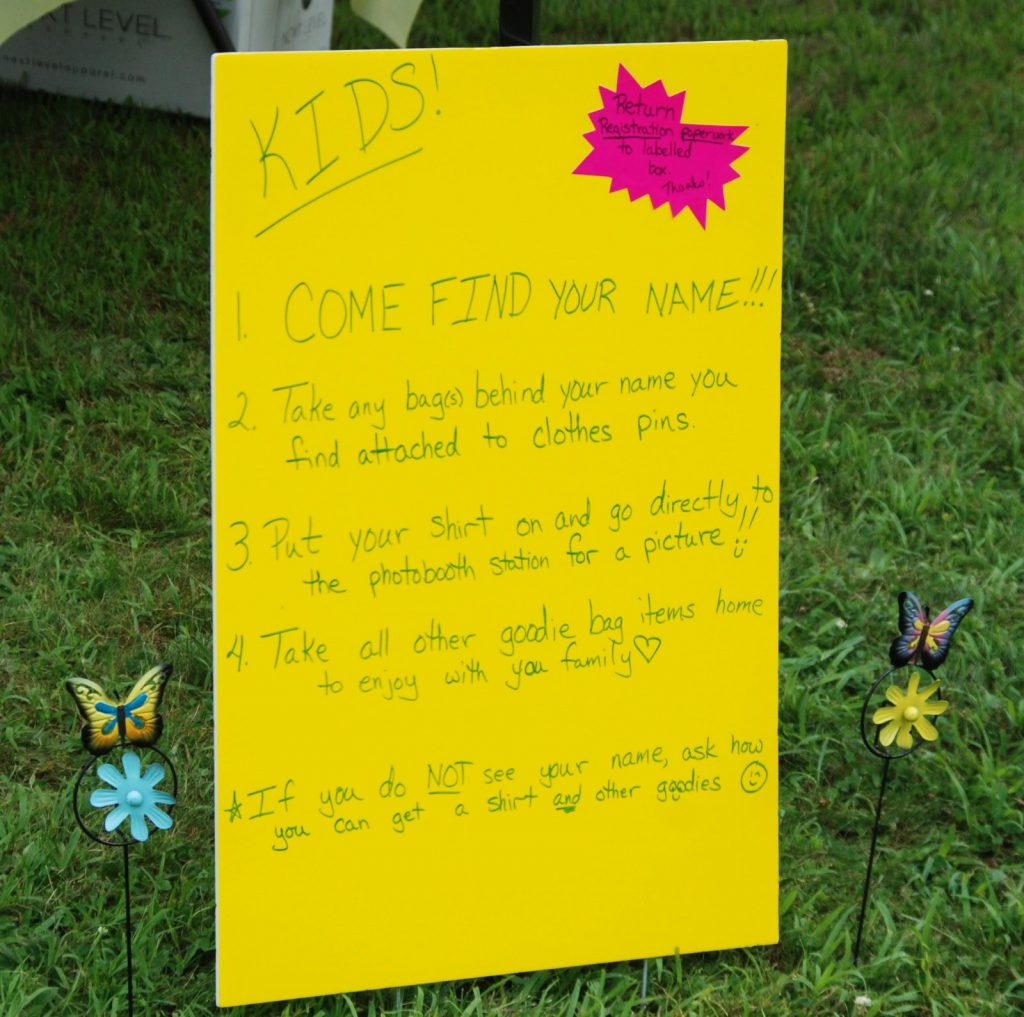 XT LEVEL
nextlevelapparel.com
NEXT LEVEL
KIDS!
Return
Registration paperwork
to labelled
box.
Thanks!
1. COME FIND YOUR NAME!!!
2. Take any bag(s) behind your name you
find attached to clothes pins.
3. Put your shirt on and go directly to
the photobooth station for a picture!!
4. Take all other goodie bag items home
to enjoy with you family♡
☆If you do NOT see your name, ask how
you can get a shirt and other goodies ☺